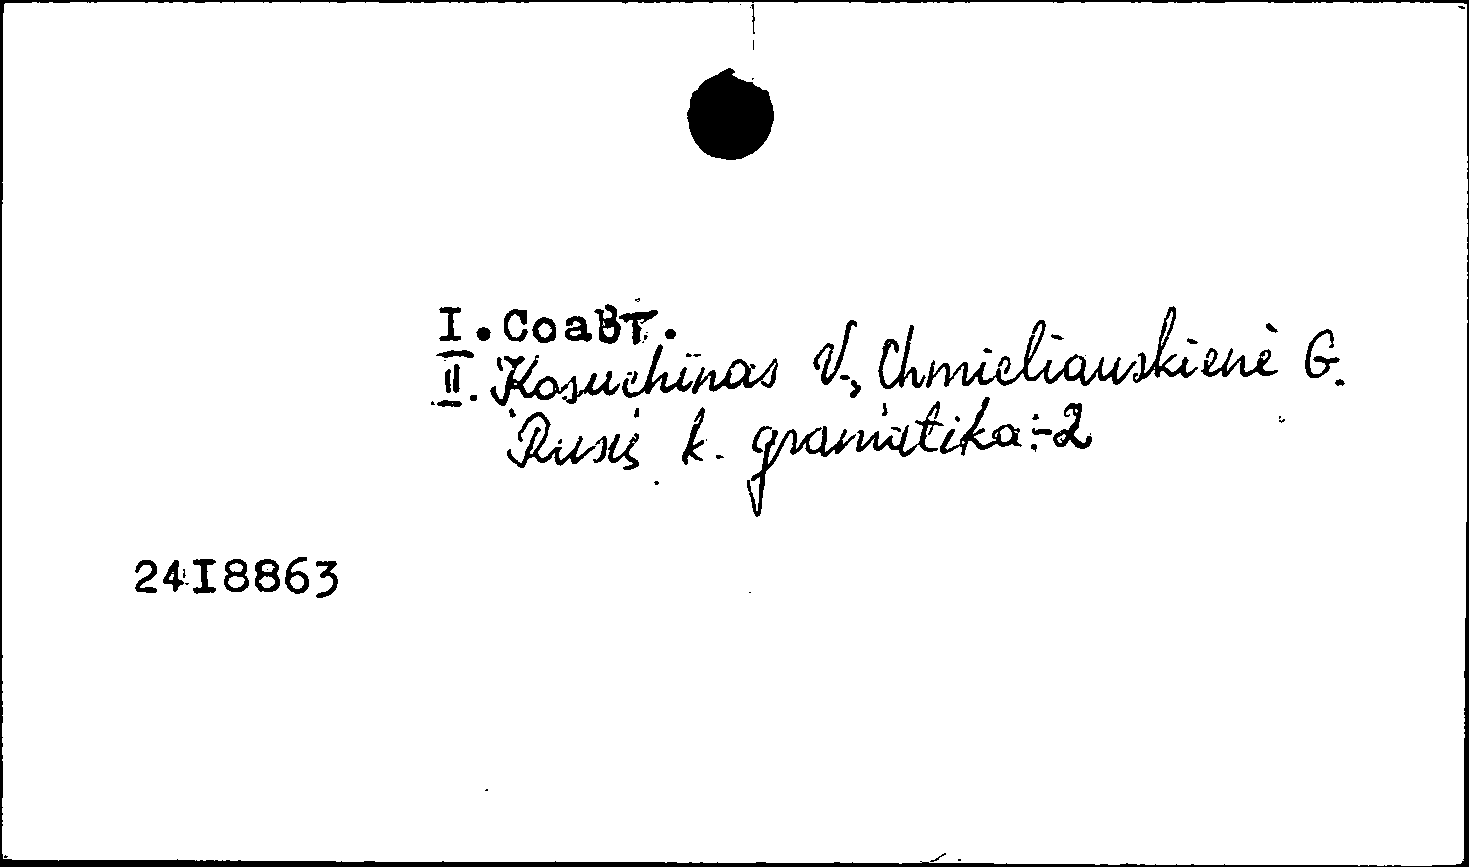 I. Соавт.
II. Kosuchinas V., Chmieliauskienė G.
Rusų k. gramatika:-2
24I8863